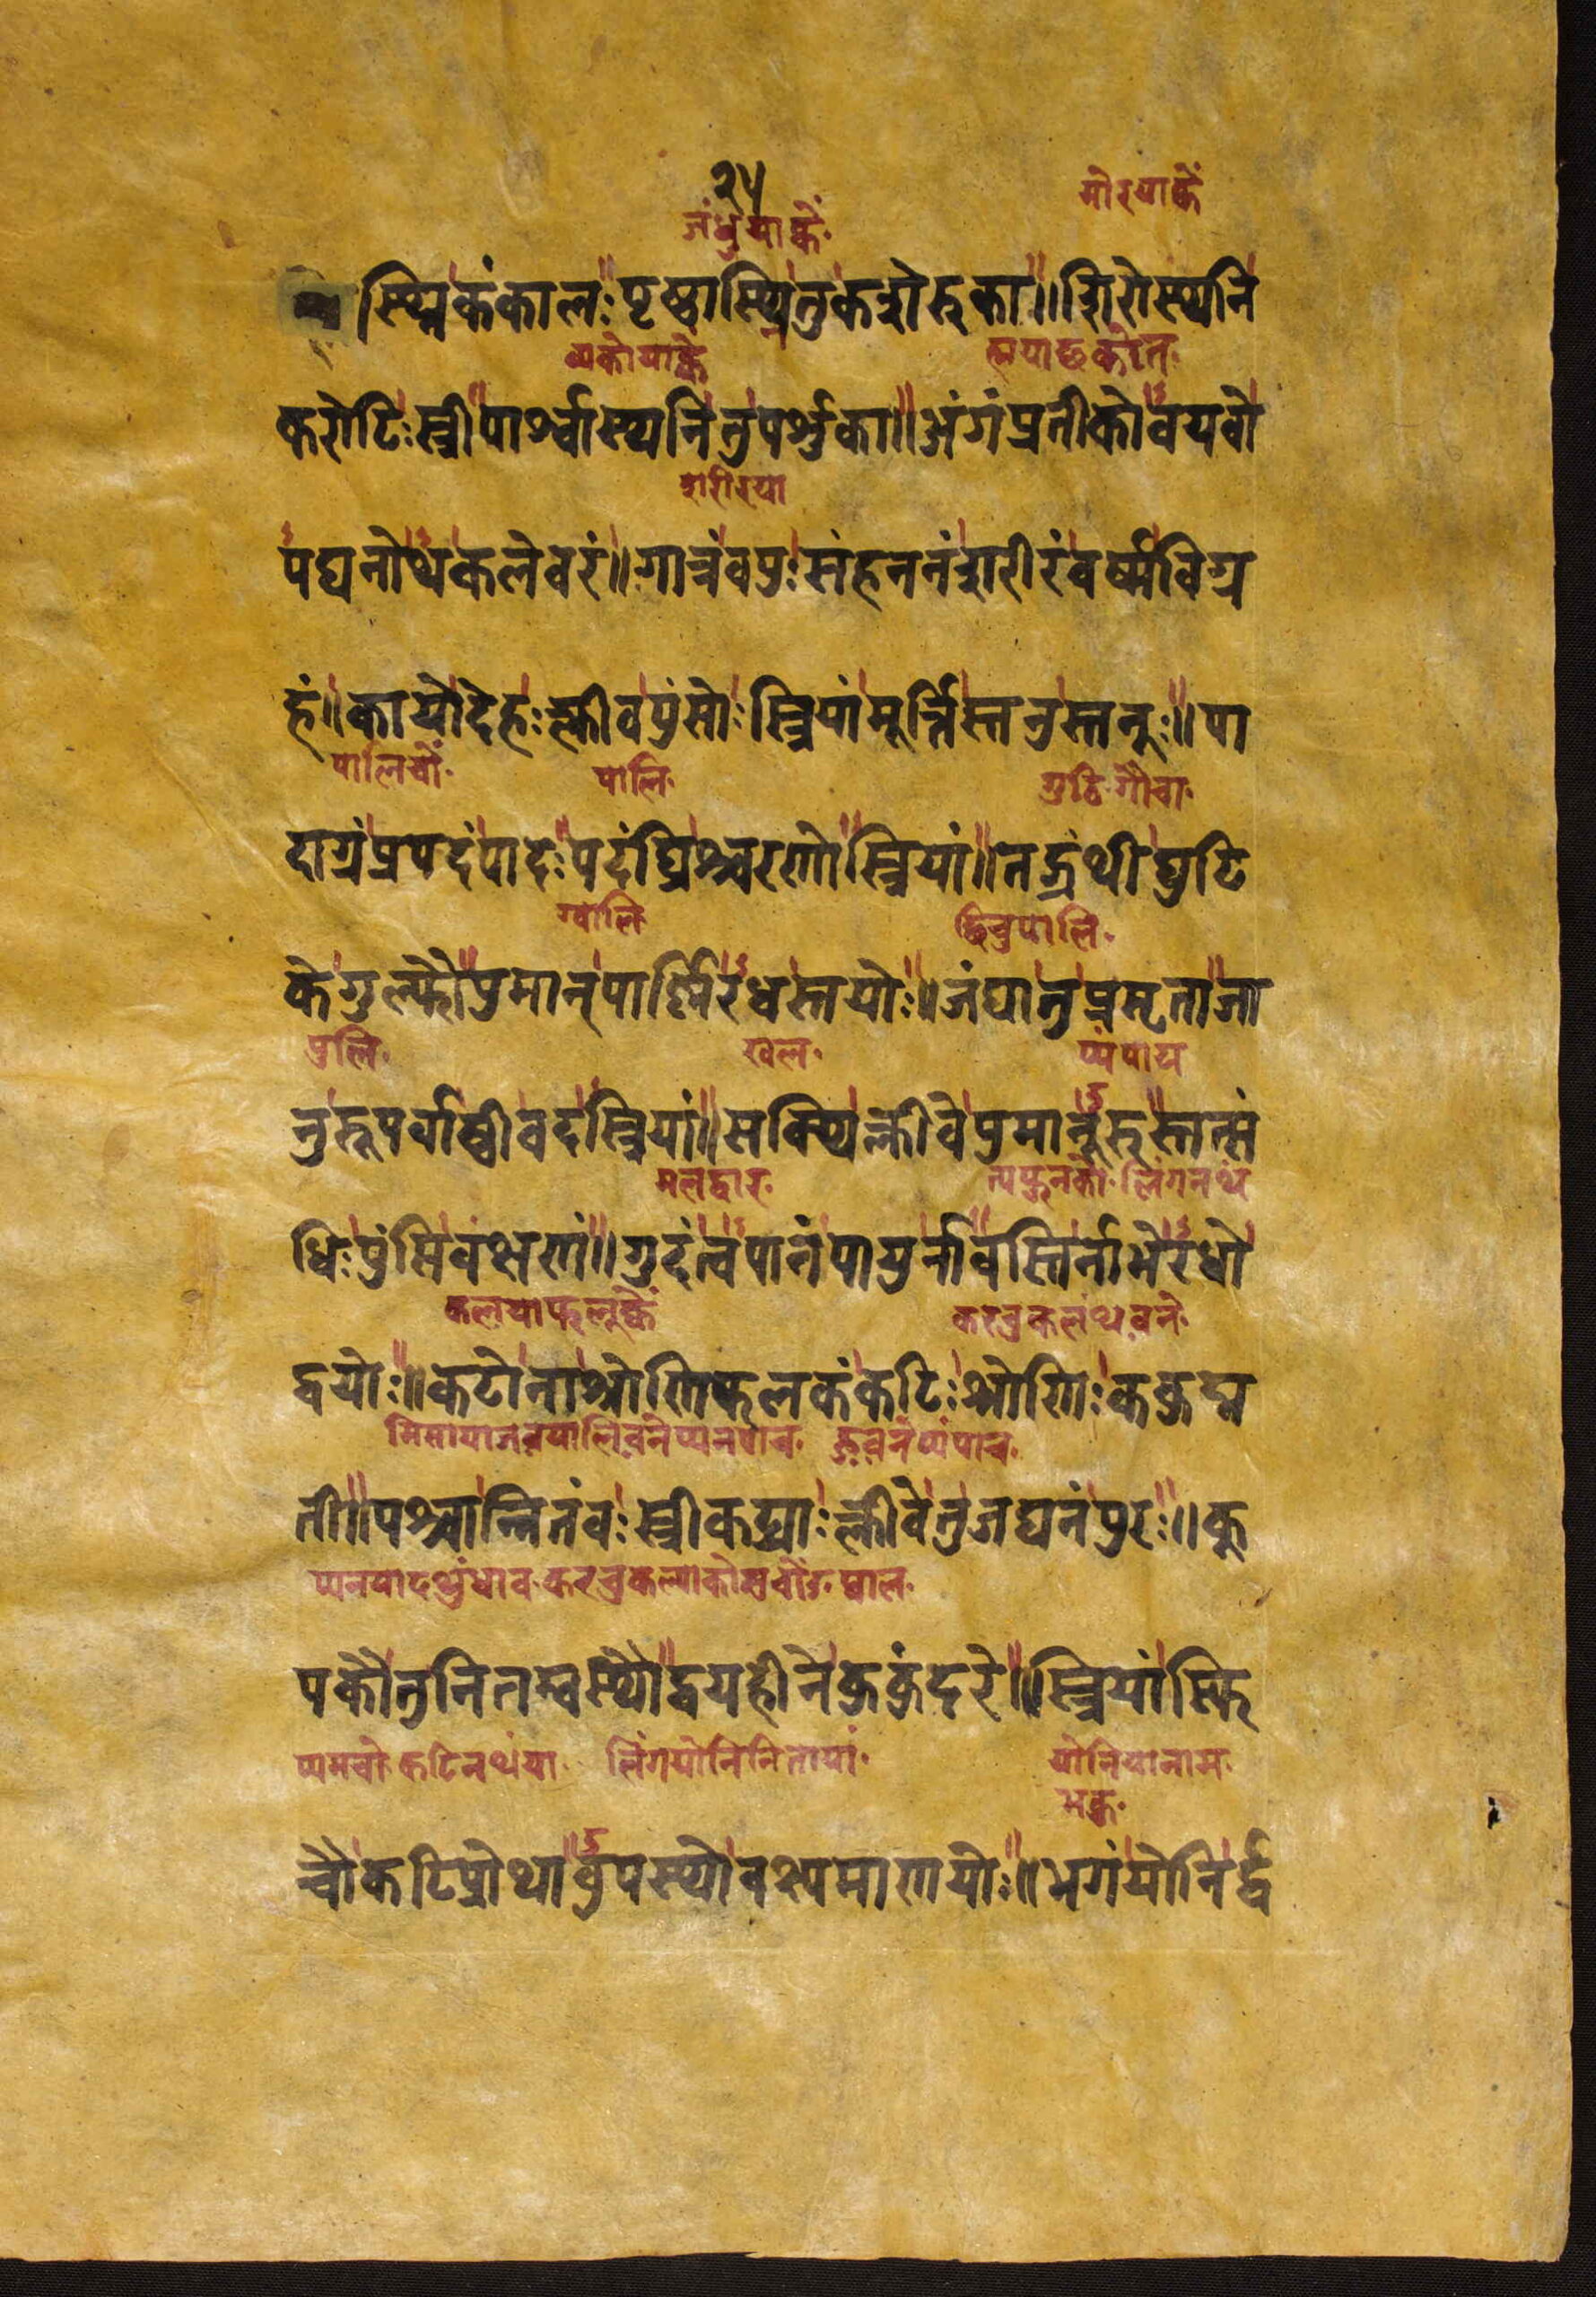 २५
मोरयाक्वें
जंधुयाक्वें
स्थ्निकंकालःपृष्ठास्थ्नितुकशेरुका॥शिरोस्थनि
व्यकोयाक्वें
करोटिःस्त्रीपार्श्वास्थनितुपर्शुका॥अंगंप्रतीकोवयवो
शरीरया
पघनोथकलेवरं॥गात्रंवपुःसंहननंशरीरंवर्ष्मविग्र
हं॥कायोदेहःक्लीवपुंसोःस्त्रियांमूर्त्तिस्तनुस्तनूः॥पा
पालिचों पालि गुठि गौचा
दाग्रंप्रपदंपादःपदंघ्रिश्चरणोस्त्रियां॥तद्ग्रंथीघुटि
ग्वालि द्वितुपालि
केगुल्फौपुमान्पार्ष्णिरधस्तयोः॥जंघातुप्रसृताजा
पुलि खल प्यंपाद्य
नुरूपर्वाष्ठीवदस्त्रियां॥सक्थिक्लीवेपुमानूरुस्तत्सं
मलद्वार लिंगनथं
धिःपुंसिवंक्षणं॥गुदंत्वपानंपायुर्नावस्तिर्नाभेरधो
कलयाफलुक्वें
द्वयोः॥कटोनाश्रोणिफलकंकटिःश्रोणिःककुद्म
ती॥पश्चान्नितंवःस्त्रीकट्याःक्लीवेतुजघनंपुरः॥कू
पकौतुनितम्वस्थौद्वयहीनेकुकुंदरे॥स्त्रियांस्फि
प्यमचो कटिनथंया लिंगयोनिनितायां योनियानाम
चौकटिप्रोथावुपस्थोवक्ष्यमाणयोः॥भगंयोनिर्द्व